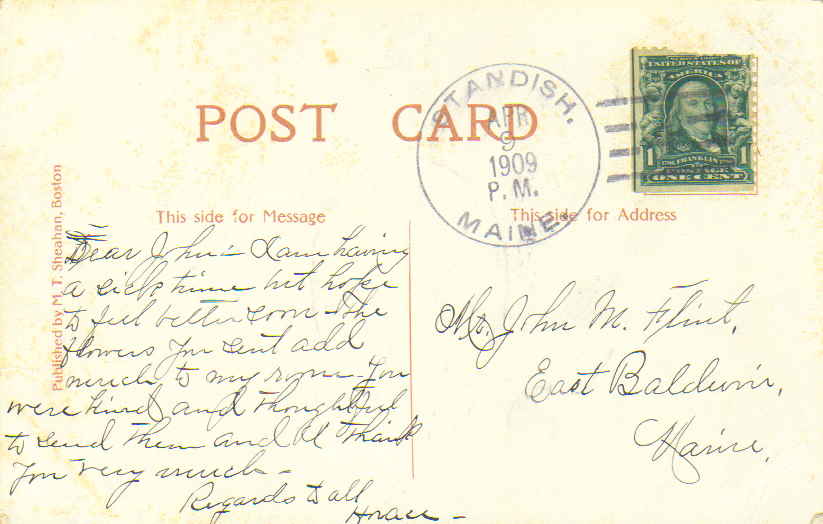 POST CARD
STANDISH.
APR
9
1909
P. M.
MAINE.
UNITED STATES OF
AMERICA
1 1
FRANKLIN
POSTAGE
ONE CENT
Published by M. T. Sheahan, Boston
This side for Message
This side for Address
Dear John:- I am having
a sick time but hope
to feel better soon - The
flowers you sent add
much to my room - You
were kind and thoughtful
to send them and I thank
you very much -
Regards to all
Horace -
Mr. John M. Flint,
East Baldwin,
Maine.